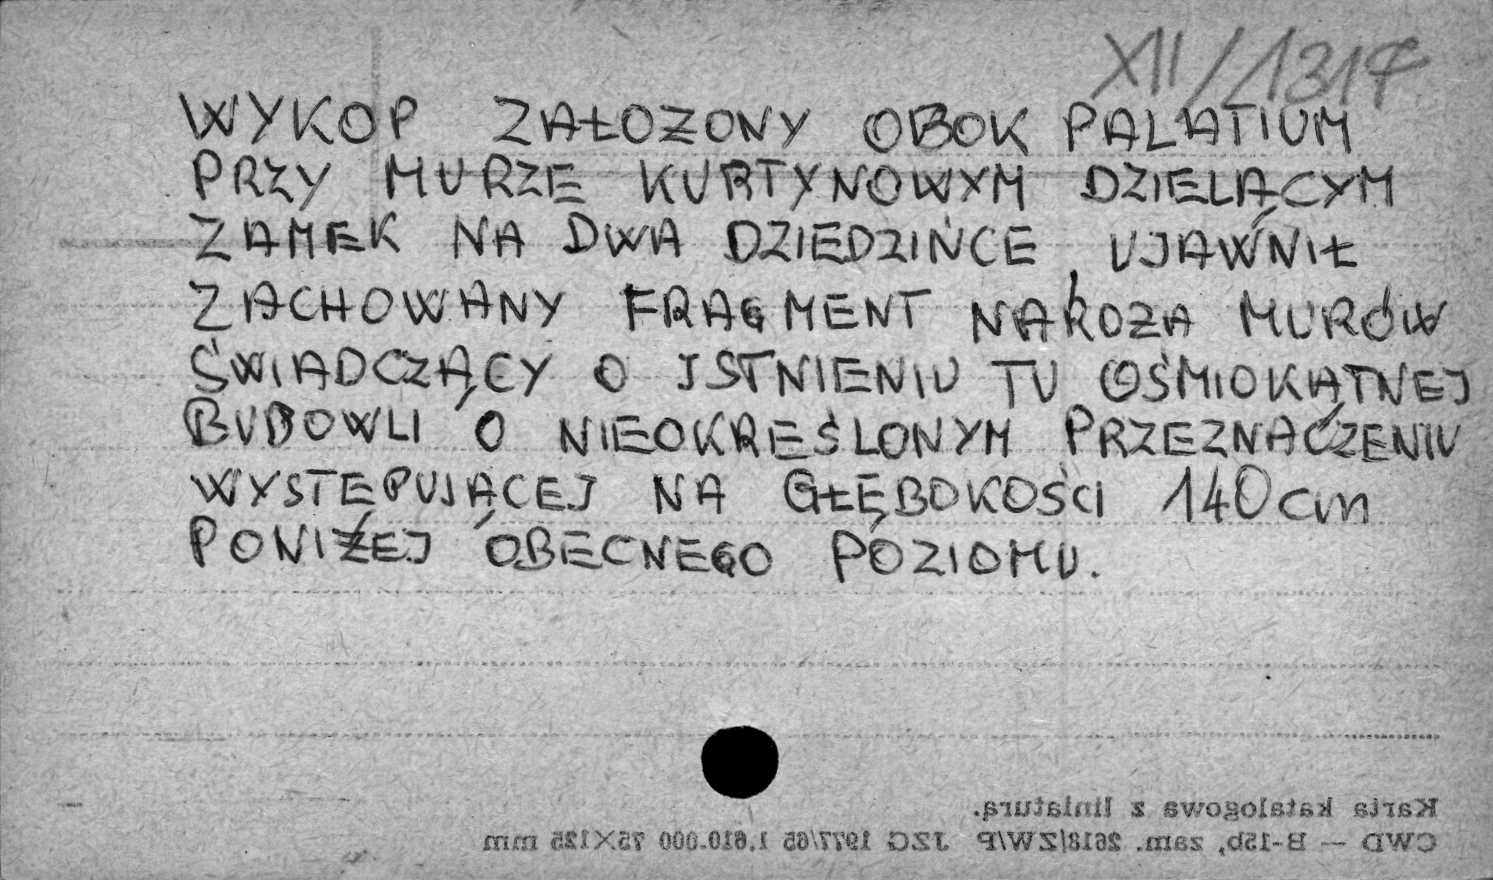 XII/1317
WYKOP ZAŁOZONY OBOK PALATIUM
PRZY MURZE KURTYNOWYM DZIELĄCYM
ZAMEK NA DWA DZIEDZIŃCE UJAWNIŁ
ZACHOWANY FRAGMENT NAROŻA MURÓW
ŚWIADCZĄCY O ISTNIENIU TU OŚMIOKĄTNEJ
BUDOWLI O NIEOKREŚLONYM PRZEZNACZENIU
WYSTĘPUJĄCEJ NA GŁĘBOKOŚCI 140 cm
PONIŻEJ OBECNEGO POZIOMU.
Karta katalogowa z liniaturą.
CWD — B-15b, zam. 2618/ZW/P JZG 1977/65 1.610.000 75×125 mm